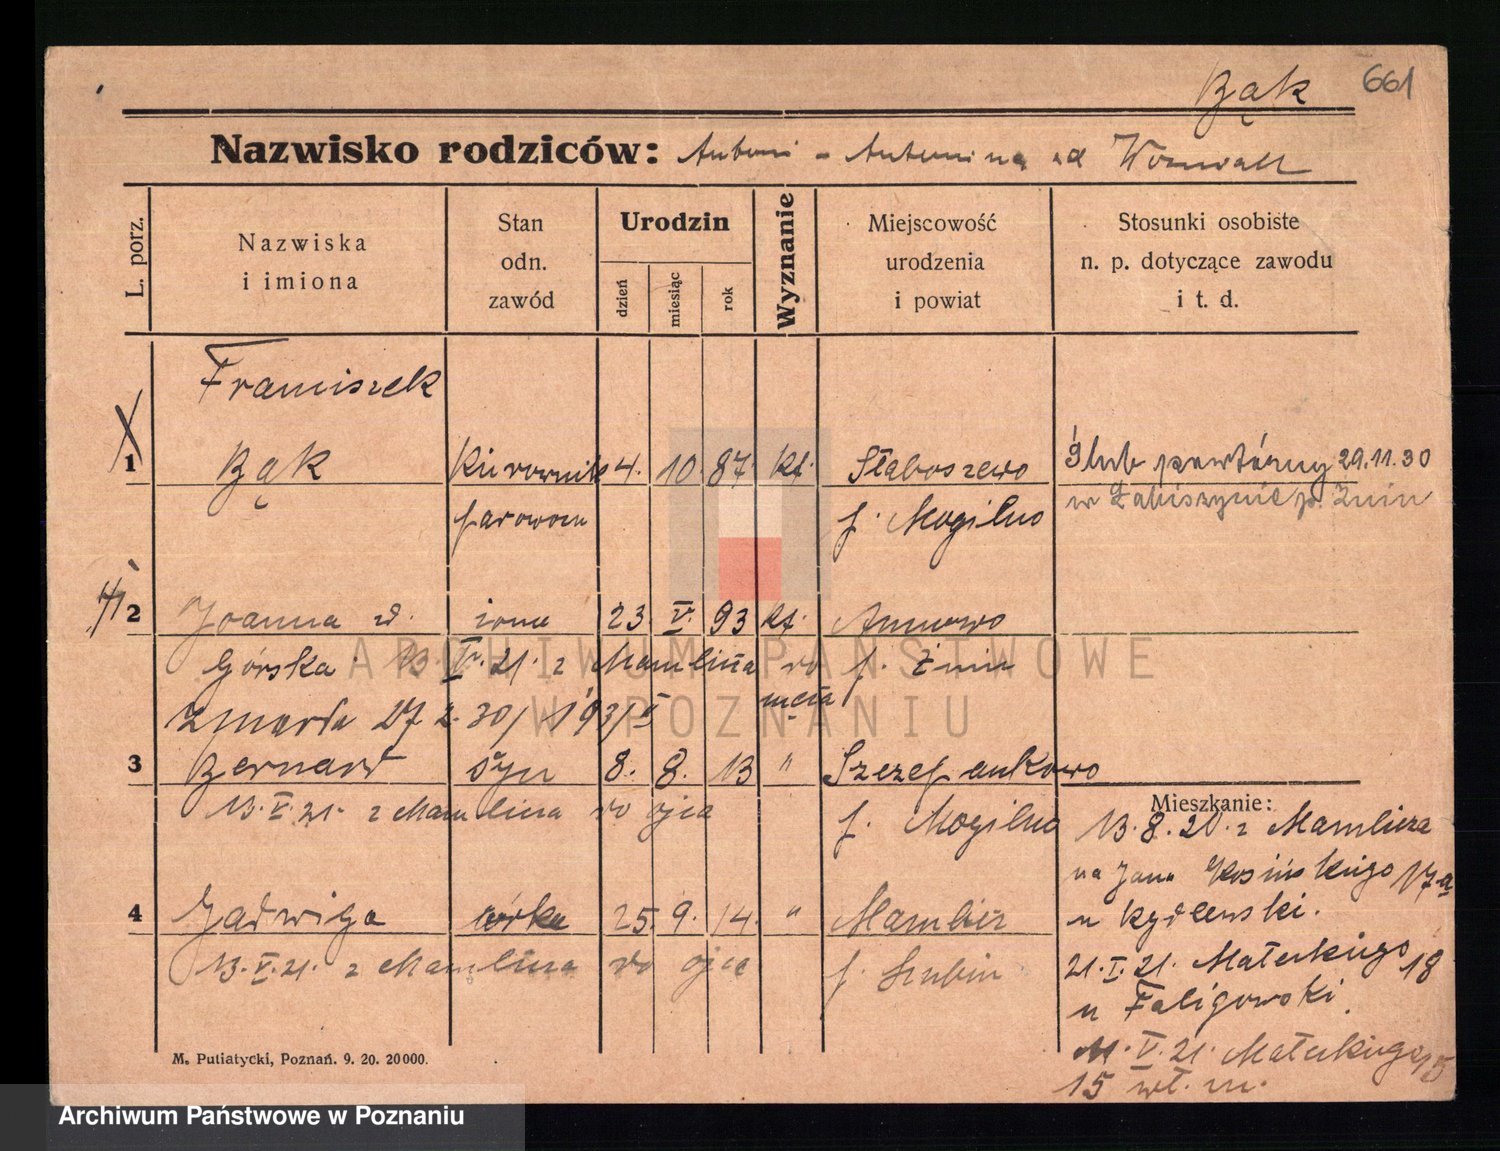 Bąk 661
Nazwisko rodziców: Antoni - Antonina
L. porz.
Nazwiska
i imiona
Stan
odn.
zawód
Urodzin
dzień
miesiąc
rok
Wyznanie
Miejscowość
urodzenia
i powiat
Stosunki osobiste
n. p. dotyczące zawodu
i t. d.
Franciszek
1 Bąk kierownik 4. 10. 87. kt. Słaboszewo Ślub powtórny 29.11.30
parowozu p. Mogilno w Łabiszynie p. Żnin
2 Joanna żona 23. V. 93 kt. Annowo
Górska 13. V. 21. z Mamlicza do p. Żnin
zmarła 27 2. 30 męża
3 Bernard syn 8. 8. 13 " Szczepankowo
13. V. 21. z Mamlicza do ojca p. Mogilno
4 Jadwiga córka 25. 9. 14. " Mamlicz
13. V. 21. z Mamlicza do ojca p. Szubin
Mieszkanie:
13. 8. 20. z Mamlicza
na Jana Kosińskiego 17a
u Kydlewski.
21. I. 21. Małeckiego 18
u Faligowski.
11. V. 21. Małeckiego 15
15 wł. m.
M. Putiatycki, Poznań. 9. 20. 20000.
ARCHIWUM PAŃSTWOWE
W POZNANIU
Archiwum Państwowe w Poznaniu